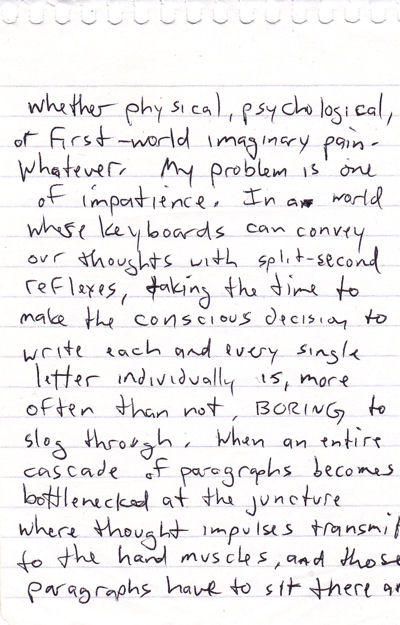 whether physical, psychological,
or first-world imaginary pain.
Whatever. My problem is one
of impatience. In a world
where keyboards can convey
our thoughts with split-second
reflexes, taking the time to
make the conscious decision to
write each and every single
letter individually is, more
often than not, BORING to
slog through. When an entire
cascade of paragraphs becomes
bottlenecked at the juncture
where thought impulses transmit
to the hand muscles, and those
paragraphs have to sit there